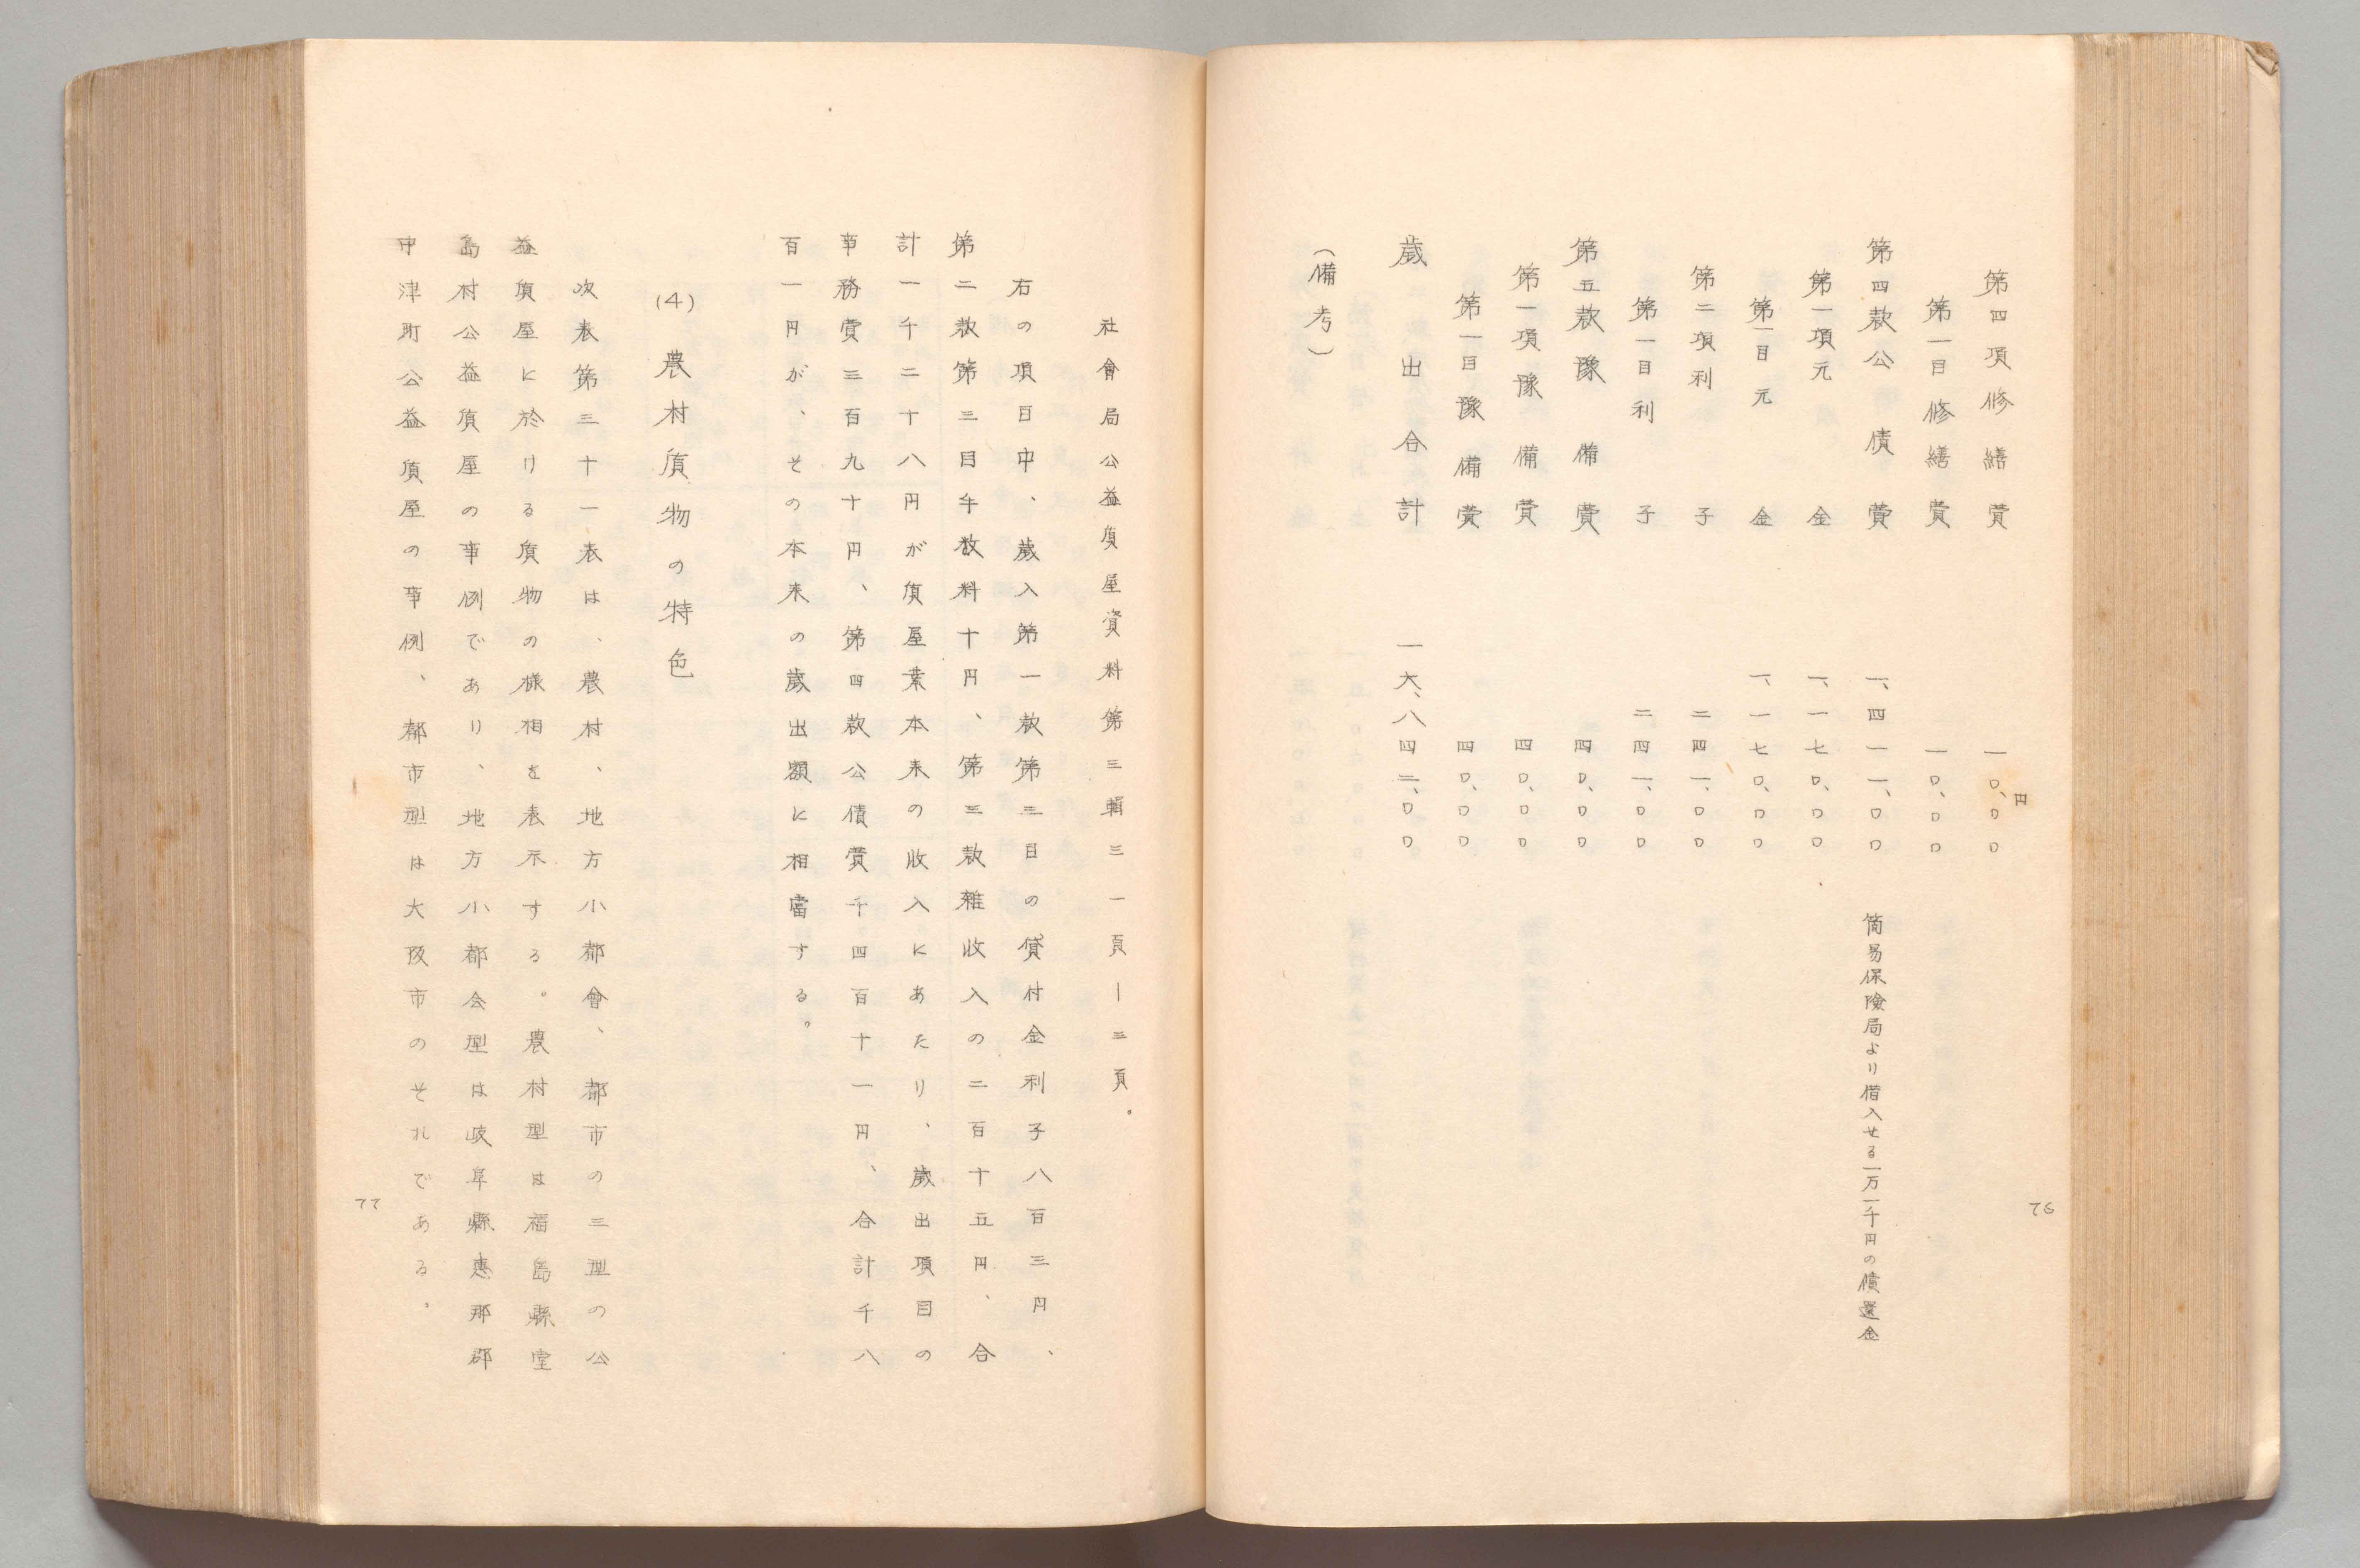 第四項修繕費 一〇、〇〇円
第一目修繕費 一〇、〇〇
第四款公債費 一、四一一、〇〇 簡易保険局より借入せる一万一千円の償還金
第一項元金 一、一七〇、〇〇
第一目元金 一、一七〇、〇〇
第二項利子 二四一、〇〇
第一目利子 二四一、〇〇
第五款豫備費 四〇、〇〇
第一項豫備費 四〇、〇〇
第一目豫備費 四〇、〇〇
歳出合計 一六、八四二、〇〇
(備考)
76
社會局公益質屋資料第三輯三一頁―三頁。
右の項目中、歳入第一款第三目の貸付金利子八百三円、
第二款第三目手数料十円、第三款雑收入の二百十五円、合
計一千二十八円が質屋業本来の收入にあたり、歳出項目の
事務費三百九十円、第四款公債費千四百十一円、合計千八
百一円が、その本来の歳出額に相當する。
(4) 農村質物の特色
次表第三十一表は、農村、地方小都會、都市の三型の公
益質屋に於ける質物の様相を表示する。農村型は福島縣堂
島村公益質屋の事例であり、地方小都会型は岐阜縣恵那郡
中津町公益質屋の事例、都市型は大阪市のそれである。
77